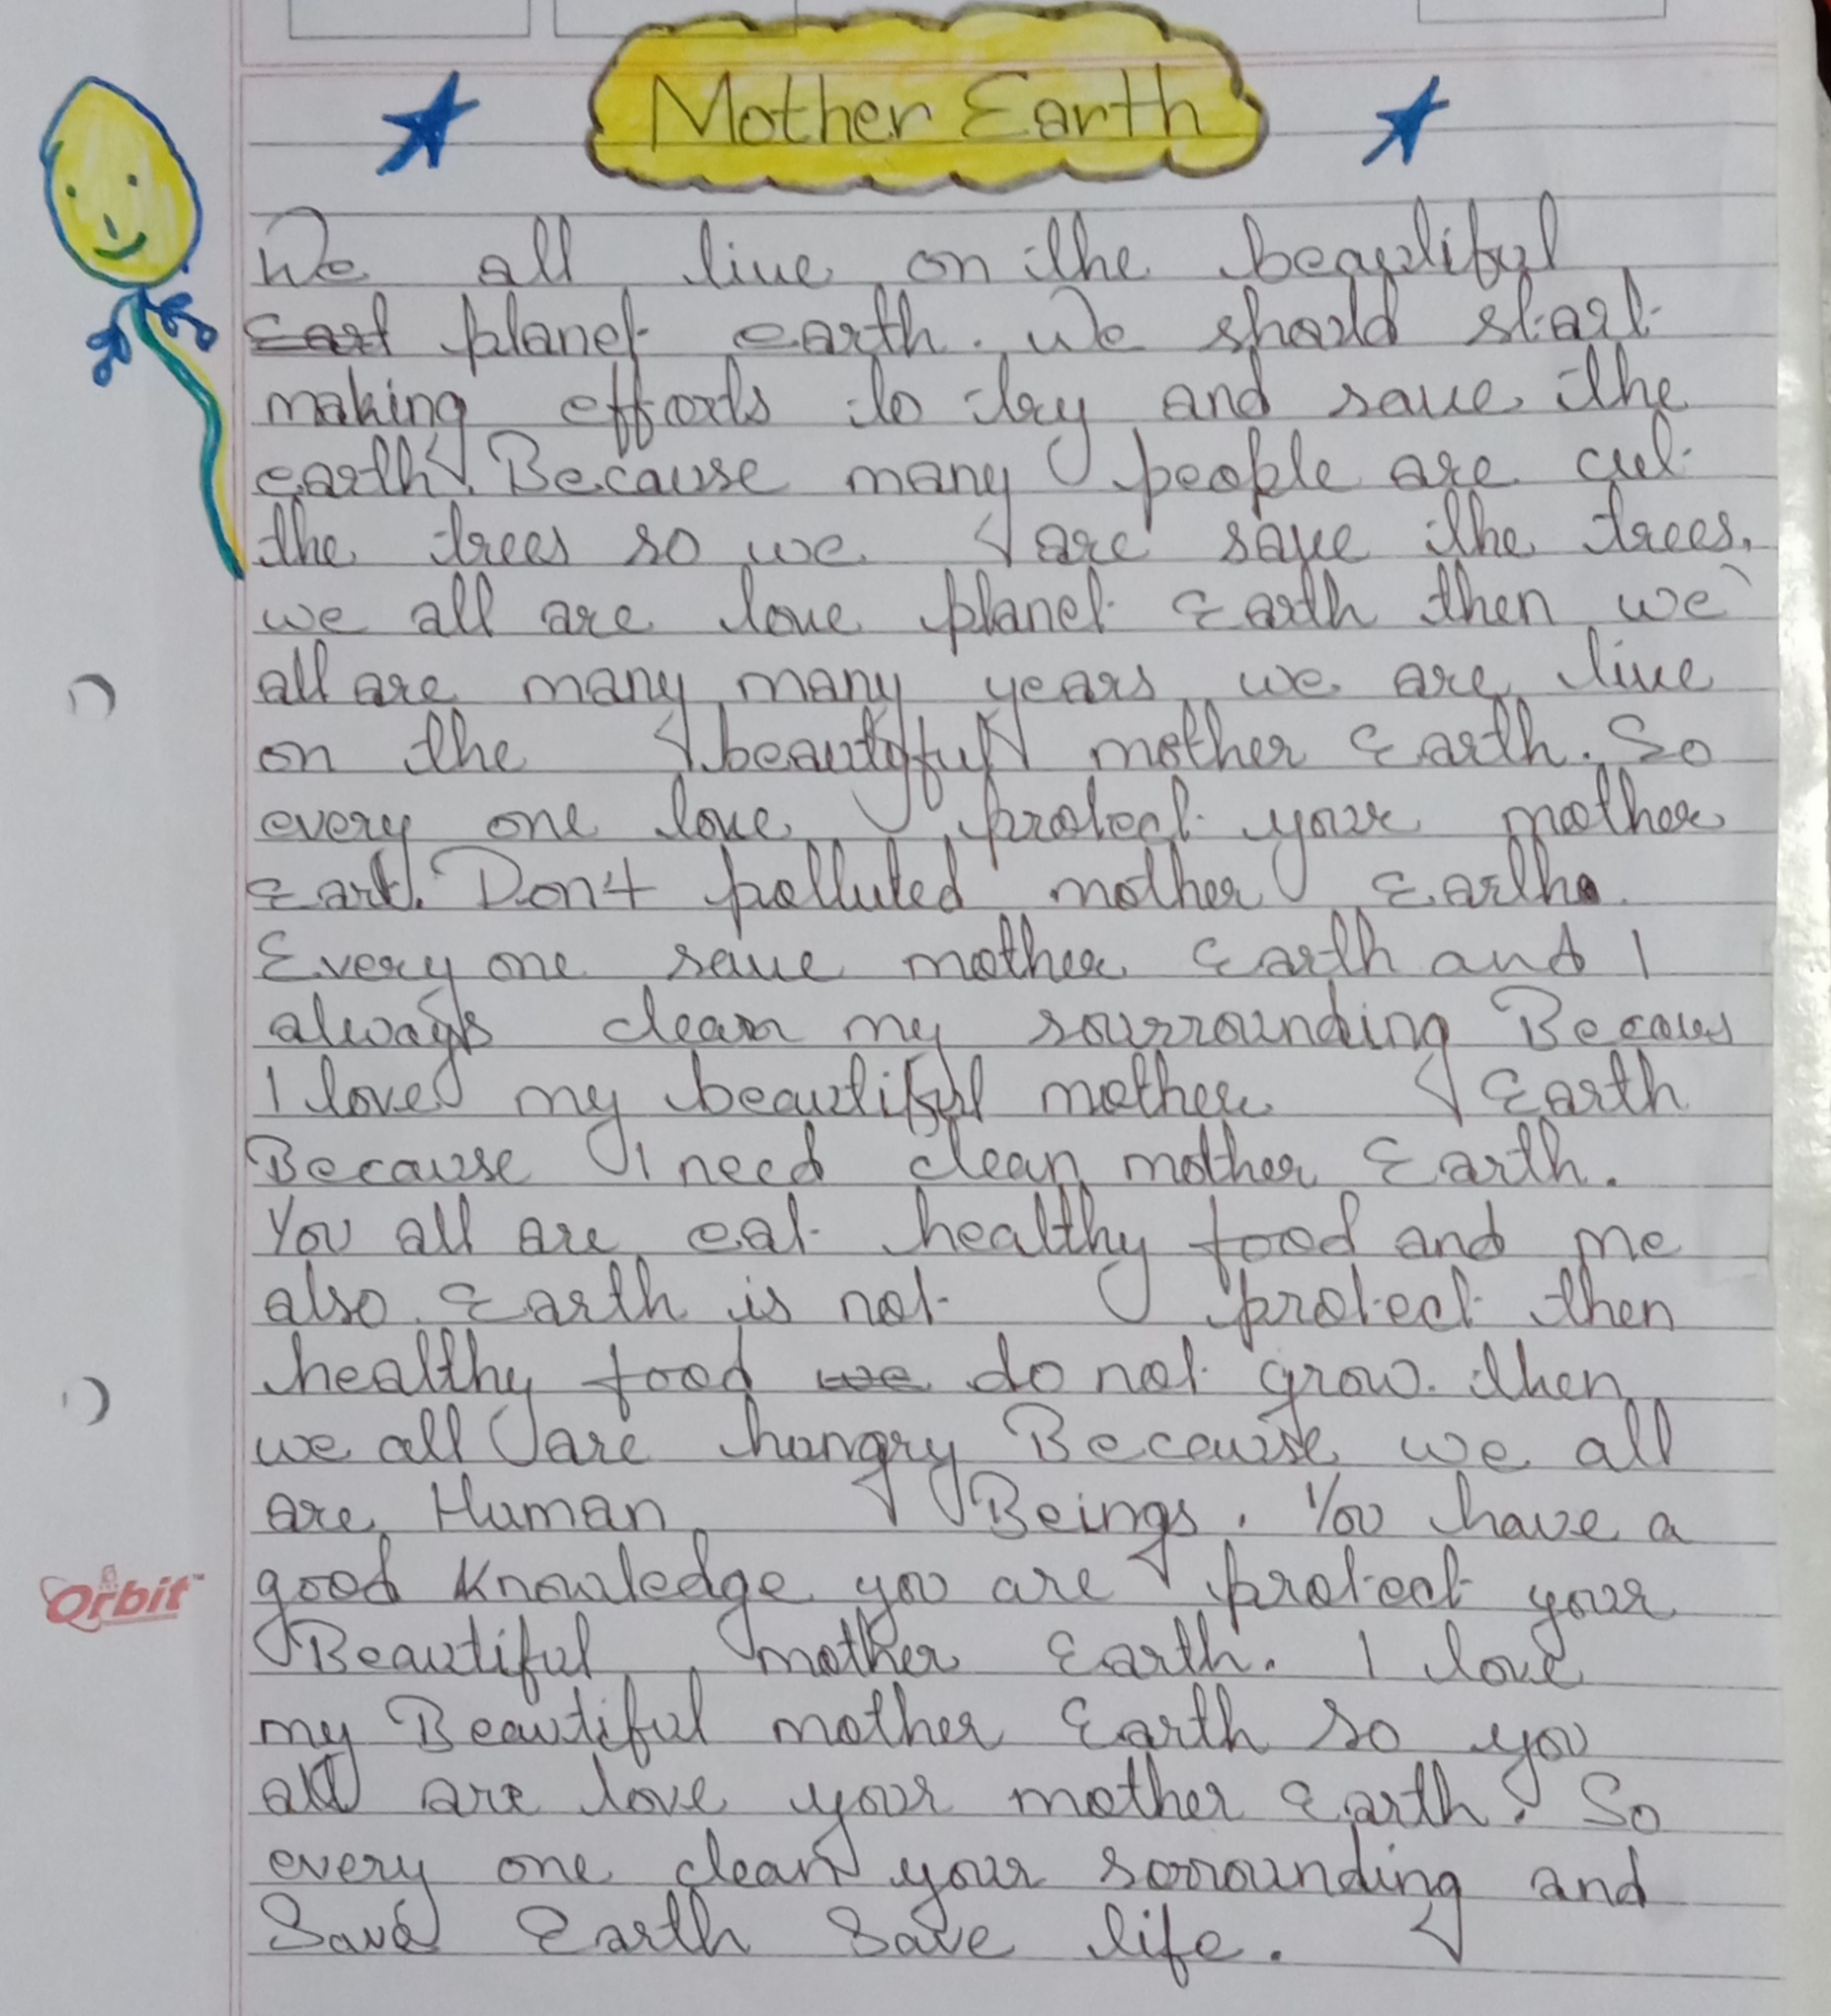 Mother Earth
We all live on the beautiful
Eart planet earth. We should start
making efforts to try and save the
earth. Because many people are cut
the trees so we are save the trees.
we all are love planet Earth then we
all are many many years we are live
on the beautyful mother Earth. So
every one love protect your mother
Eart. Don't polluted mother Earth.
Every one save mother Earth and I
always clean my sourrounding Becaus
I love my beautiful mother Earth
Because I need clean mother Earth.
You all are eat healthy food and me
also Earth is not protect then
healthy food we do not grow. then
we all are hungry Because we all
are Human Beings. You have a
good Knowledge you are protect your
Beautiful mother Earth. I love
my Beautiful mother Earth so you
all are love your mother Earth. So
every one clean your sorrounding and
Save Earth Save life.
Orbit